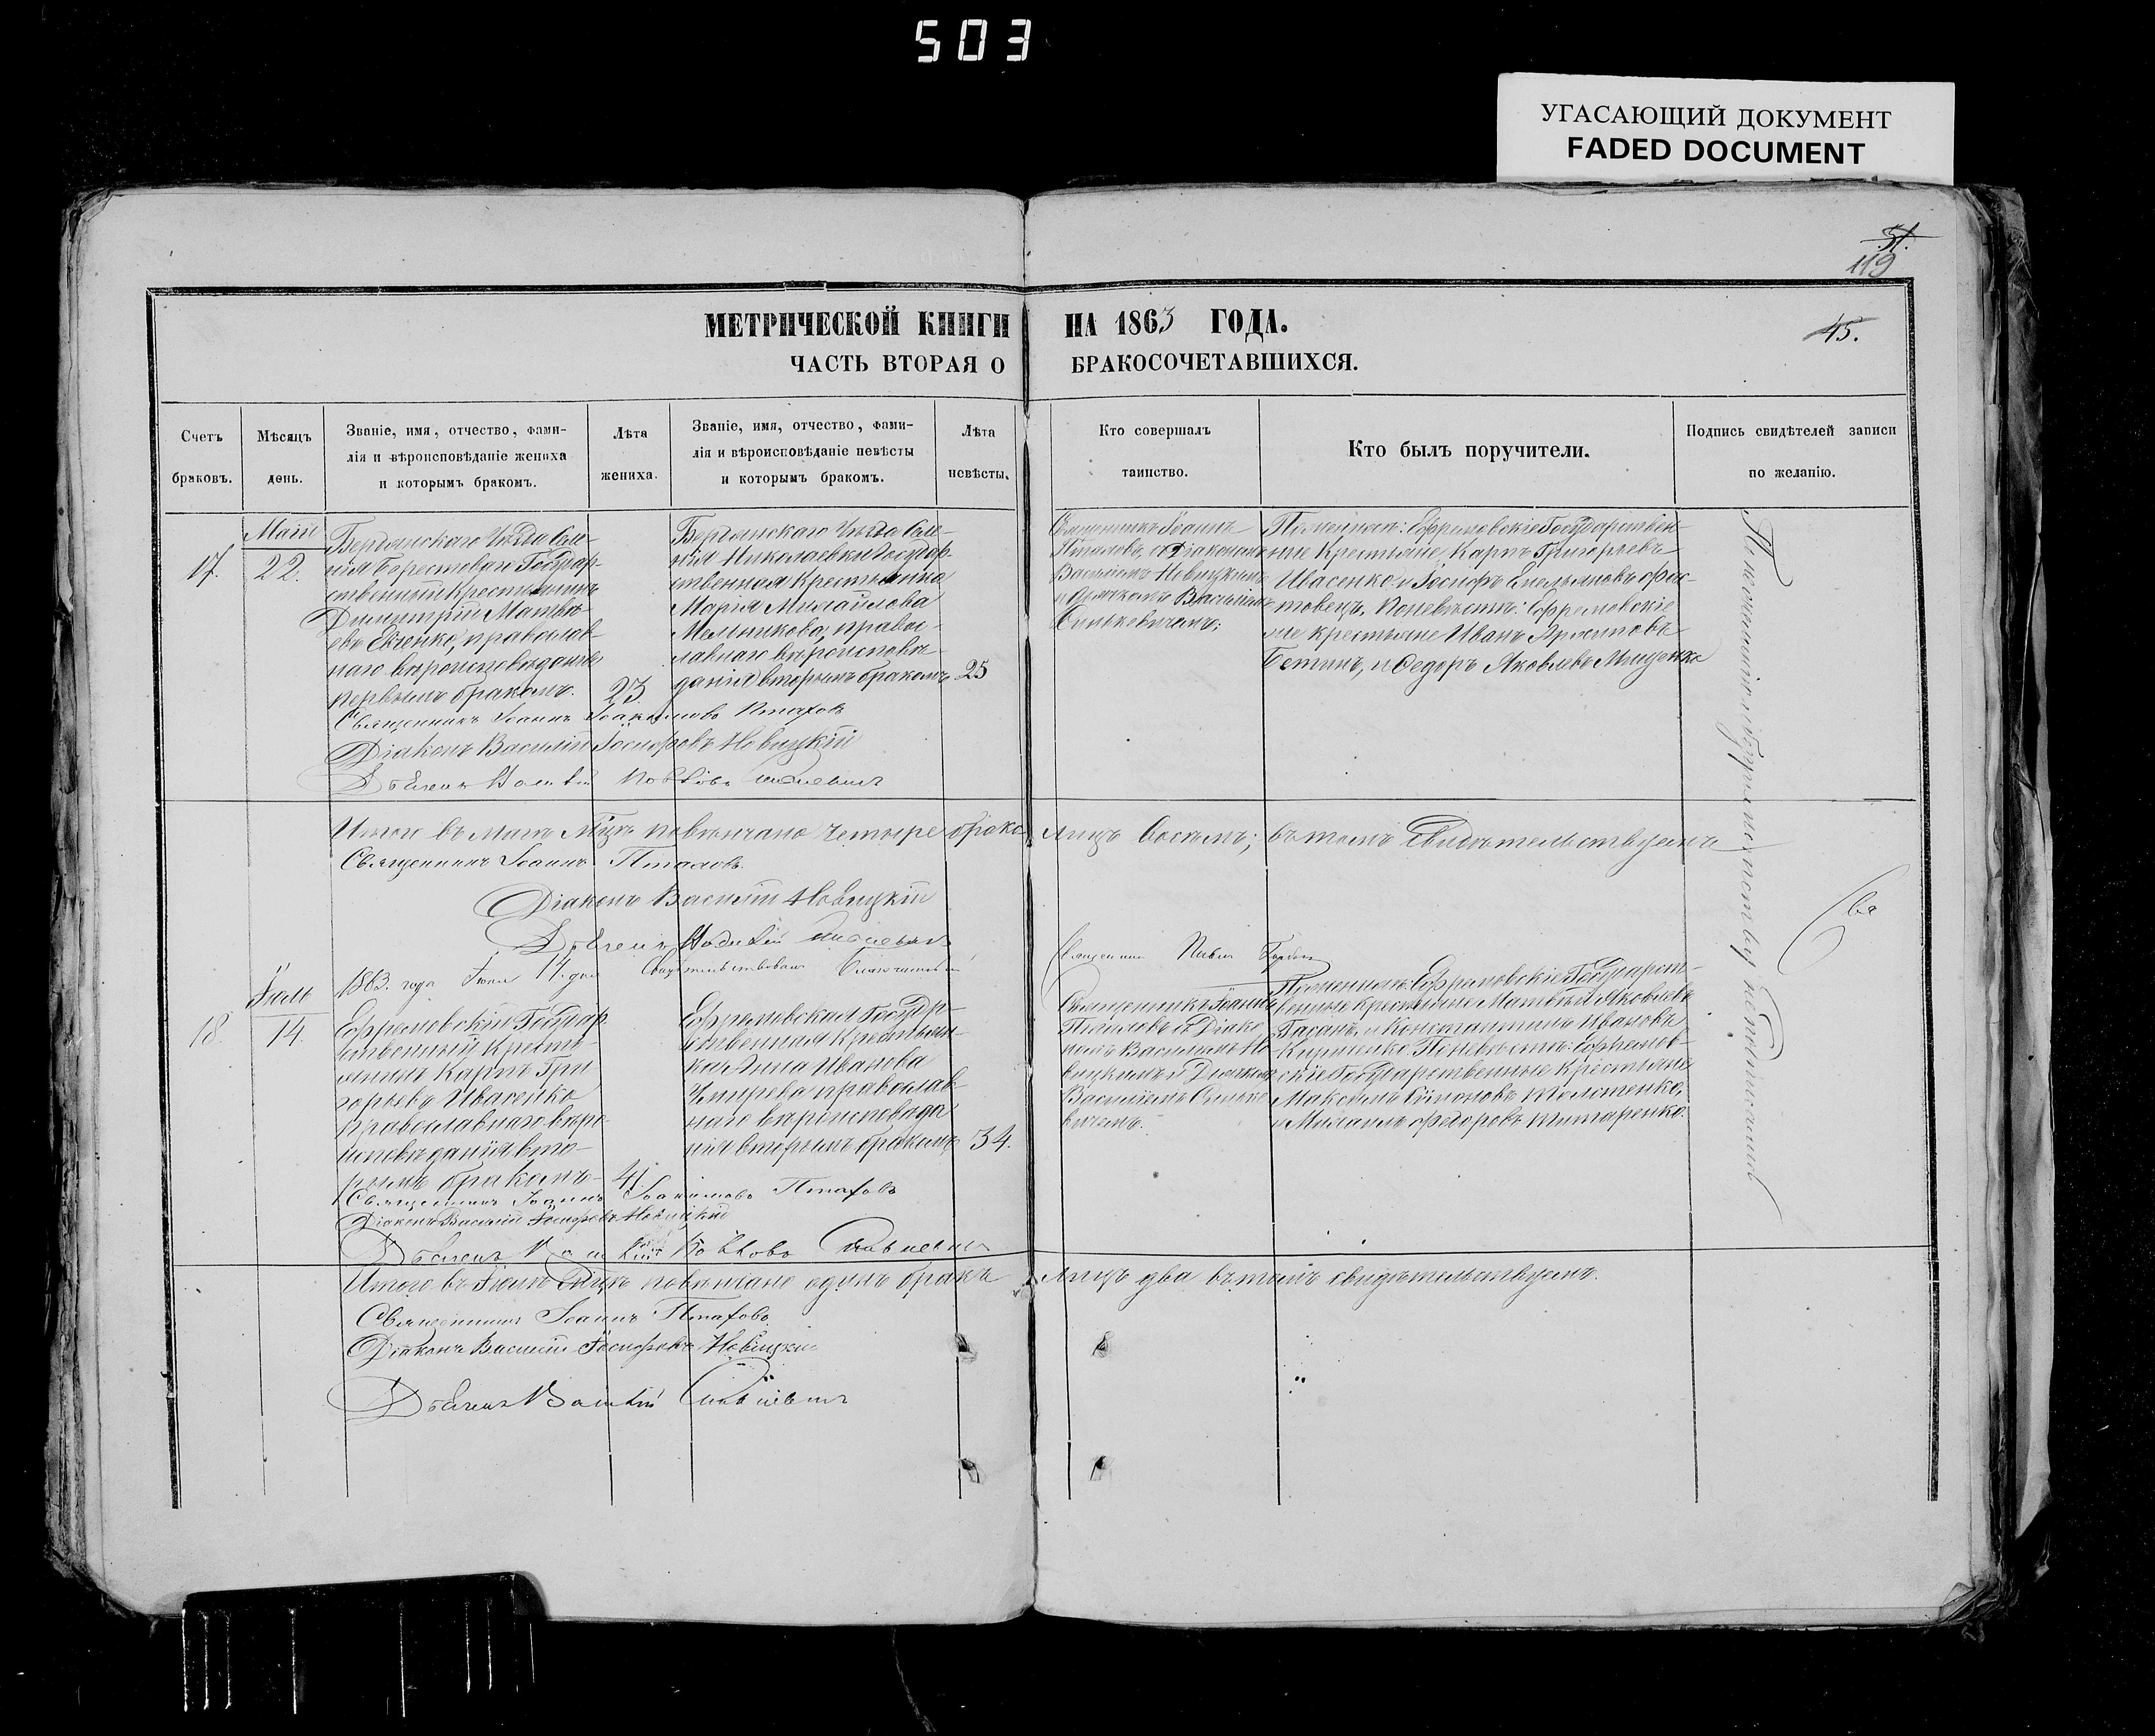 503
УГАСАЮЩИЙ ДОКУМЕНТ
FADED DOCUMENT
51.
119
МЕТРИЧЕСКОЙ КНИГИ НА 1863 ГОДА.
45.
ЧАСТЬ ВТОРАЯ О БРАКОСОЧЕТАВШИХСЯ.
Счетъ
браковъ.
Мѣсяцъ
день.
Званіе, имя, отчество, фами-
лія и вѣроисповѣданіе жениха
и которымъ бракомъ.
Лѣта
жениха.
Званіе, имя, отчество, фами-
лія и вѣроисповѣданіе невѣсты
и которымъ бракомъ.
Лѣта
невѣсты.
Кто совершалъ
таинство.
Кто былъ поручители.
Подпись свидѣтелей записи
по желанію.
17.
Маій
22.
Бердянскаго Уѣзда Селе-
нія Берестоваго Государ-
ственный Крестьянинъ
Димитрій Матвѣ-
евъ православ-
наго вѣроисповѣданія
первымъ бракомъ.
23
Бердянскаго Уѣзда Селе-
нія Николаевки Государ-
ственная Крестьянка
Марія Михайлова
Мельникова, правос-
лавнаго вѣроисповѣ-
данія вторымъ бракомъ
25
Священникъ Іоаннъ
Птаховъ, съ Діакономъ
Василіемъ Новицкимъ
и Дьячкомъ Василіемъ
Синькевичемъ;
По женихѣ: Ефремовскіе Государствен-
ные Крестьяне, Карпъ Григорьевъ
Ивасенко и Іосифъ Емельяновъ
По невѣстѣ: Ефремовскіе
же крестьяне Иванъ
и Федоръ Яковлевъ Мищенко
Священникъ Іоаннъ Іоакимовъ Птаховъ
Діаконъ Василій Іосифовъ Новицкій
Дьячекъ Василій Синькевичъ
Итого въ Маѣ Мѣсяцѣ повѣнчано четыре брака лицъ восемь; въ томъ свидѣтельствуемъ
Священникъ Іоаннъ Птаховъ
Діаконъ Василій Новицкій
Дьячекъ Василій Синькевичъ
1863. года Іюля 14. дня Свидѣтельствовалъ Благочинный Священникъ Павелъ
18.
Іюль
14.
Ефремовскій Государ-
ственный Кресть-
янинъ Карпъ Гри-
горьевъ Ивасенко
Православнаго вѣро-
исповѣданія вто-
рымъ бракомъ
41.
Ефремовская Государ-
ственная Крестьян-
ка Анна Иванова
православ-
наго вѣроисповѣда-
нія вторымъ бракомъ
34.
Священникъ Іоаннъ
Птаховъ съ Діако-
номъ Василіемъ Но-
вицкимъ и Дьячкомъ
Василіемъ Синьке-
вичемъ.
По женихѣ: Ефремовскіе Государст-
венные крестьяне Матвѣй Яковлевъ
и Константинъ Ивановъ
Кириченко. По невѣстѣ: Ефремов-
скіе Государственные Крестьяне
Максимъ Симоновъ Толстенко,
и Михаилъ Федоровъ Титаренко.
Священникъ Іоаннъ Іоакимовъ Птаховъ
Діаконъ Василій Іосифовъ Новицкій
Дьячекъ Василій Синькевичъ
Итого въ Іюлѣ Мѣсяцѣ повѣнчано одинъ бракъ лицъ два въ томъ свидѣтельствуемъ.
Священникъ Іоаннъ Птаховъ
Діаконъ Василій Іосифовъ Новицкій
Дьячекъ Василій Синькевичъ